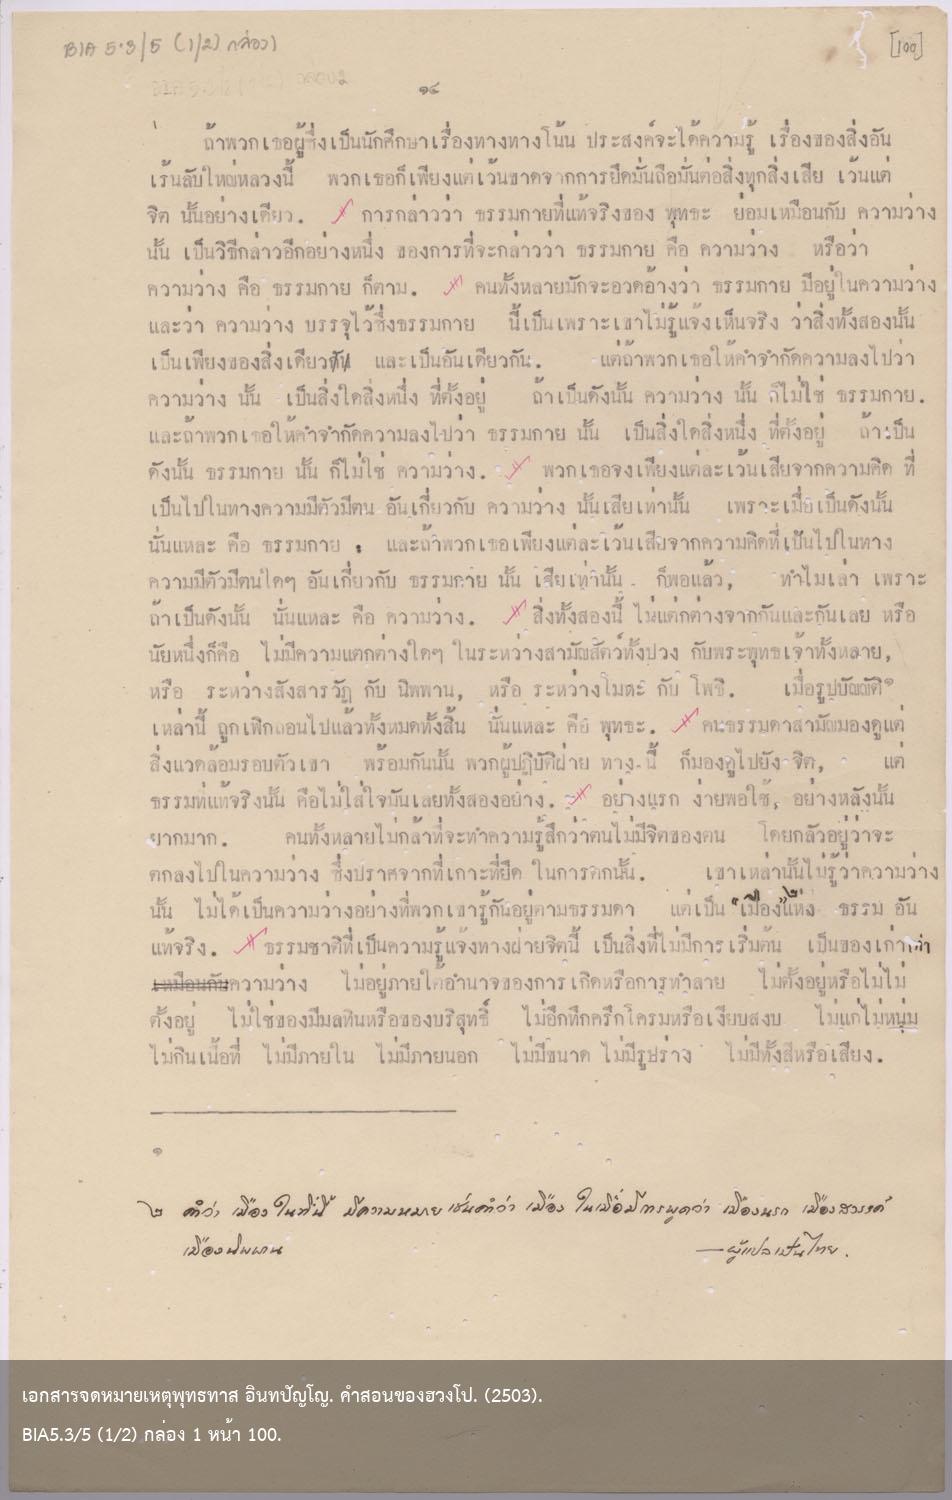 BIA 5.3/5 (1/2) กล่อง 1
[100]
๑๔
ถ้าพวกเธอผู้ซึ่งเป็นนักศึกษาเรื่องทางทางโน้น ประสงค์จะได้ความรู้ เรื่องของสิ่งอัน
เร้นลับใหญ่หลวงนี้ พวกเธอก็เพียงแต่เว้นขาดจากการยึดมั่นถือมั่นต่อสิ่งทุกสิ่งเสีย เว้นแต่
จิต นั้นอย่างเดียว. การกล่าวว่า ธรรมกายที่แท้จริงของ พุทธะ ย่อมเหมือนกับ ความว่าง
นั้น เป็นวิธีกล่าวอีกอย่างหนึ่ง ของการที่จะกล่าวว่า ธรรมกาย คือ ความว่าง หรือว่า
ความว่าง คือ ธรรมกาย ก็ตาม. คนทั้งหลายมักจะอวดอ้างว่า ธรรมกาย มีอยู่ในความว่าง
และว่า ความว่าง บรรจุไว้ซึ่งธรรมกาย นี้เป็นเพราะเขาไม่รู้แจ้งเห็นจริง ว่าสิ่งทั้งสองนั้น
เป็นเพียงของสิ่งเดียวกัน และเป็นอันเดียวกัน. แต่ถ้าพวกเธอให้คำจำกัดความลงไปว่า
ความว่าง นั้น เป็นสิ่งใดสิ่งหนึ่ง ที่ตั้งอยู่ ถ้าเป็นดังนั้น ความว่าง นั้น ก็ไม่ใช่ ธรรมกาย.
และถ้าพวกเธอให้คำจำกัดความลงไปว่า ธรรมกาย นั้น เป็นสิ่งใดสิ่งหนึ่ง ที่ตั้งอยู่ ถ้าเป็น
ดังนั้น ธรรมกาย นั้น ก็ไม่ใช่ ความว่าง. พวกเธอจงเพียงแต่ละเว้นเสียจากความคิด ที่
เป็นไปในทางความมีตัวมีตน อันเกี่ยวกับ ความว่าง นั้นเสียเท่านั้น เพราะเมื่อเป็นดังนั้น
นั่นแหละ คือ ธรรมกาย : และถ้าพวกเธอเพียงแต่ละเว้นเสียจากความคิดที่เป็นไปในทาง
ความมีตัวมีตนใดๆ อันเกี่ยวกับ ธรรมกาย นั้น เสียเท่านั้น ก็พอแล้ว, ทำไมเล่า เพราะ
ถ้าเป็นดังนั้น นั่นแหละ คือ ความว่าง. สิ่งทั้งสองนี้ ไม่แตกต่างจากกันและกันเลย หรือ
นัยหนึ่งก็คือ ไม่มีความแตกต่างใดๆ ในระหว่างสามัญสัตว์ทั้งปวง กับพระพุทธเจ้าทั้งหลาย,
หรือ ระหว่างสังสารวัฏ กับ นิพพาน, หรือ ระหว่างโมหะ กับ โพธิ. เมื่อรูปบัญญัติ๑
เหล่านี้ ถูกเพิกถอนไปแล้วทั้งหมดทั้งสิ้น นั่นแหละ คือ พุทธะ. คนธรรมดาสามัญมองดูแต่
สิ่งแวดล้อมรอบตัวเขา พร้อมกันนั้น พวกผู้ปฏิบัติฝ่าย ทาง นี้ ก็มองดูไปยัง จิต, แต่
ธรรมที่แท้จริงนั้น คือไม่ใส่ใจมันเลยทั้งสองอย่าง. อย่างแรก ง่ายพอใช้, อย่างหลังนั้น
ยากมาก. คนทั้งหลายไม่กล้าที่จะทำความรู้สึกว่าตนไม่มีจิตของตน โดยกลัวอยู่ว่าจะ
ตกลงไปในความว่าง ซึ่งปราศจากที่เกาะที่ยึด ในการตกนั้น. เขาเหล่านั้นไม่รู้ว่าความว่าง
นั้น ไม่ได้เป็นความว่างอย่างที่พวกเขารู้กันอยู่ตามธรรมดา แต่เป็น "เมือง"๒แห่ง ธรรม อัน
แท้จริง. ธรรมชาติที่เป็นความรู้แจ้งทางฝ่ายจิตนี้ เป็นสิ่งที่ไม่มีการเริ่มต้น เป็นของเก่าเท่า
เหมือนกับความว่าง ไม่อยู่ภายใต้อำนาจของการเกิดหรือการทำลาย ไม่ตั้งอยู่หรือไม่ไม่
ตั้งอยู่ ไม่ใช่ของมีมลทินหรือของบริสุทธิ์ ไม่อึกทึกครึกโครมหรือเงียบสงบ ไม่แก่ไม่หนุ่ม
ไม่กินเนื้อที่ ไม่มีภายใน ไม่มีภายนอก ไม่มีขนาด ไม่มีรูปร่าง ไม่มีทั้งสีหรือเสียง.
๑
๒ คำว่า เมือง ในที่นี้ มีความหมาย เช่นคำว่า เมือง ในเมื่อมีการพูดว่า เมืองนรก เมืองสวรรค์
เมืองนิพพาน —ผู้แปลเป็นไทย.
เอกสารจดหมายเหตุพุทธทาส อินทปัญโญ. คำสอนของฮวงโป. (2503).
BIA5.3/5 (1/2) กล่อง 1 หน้า 100.